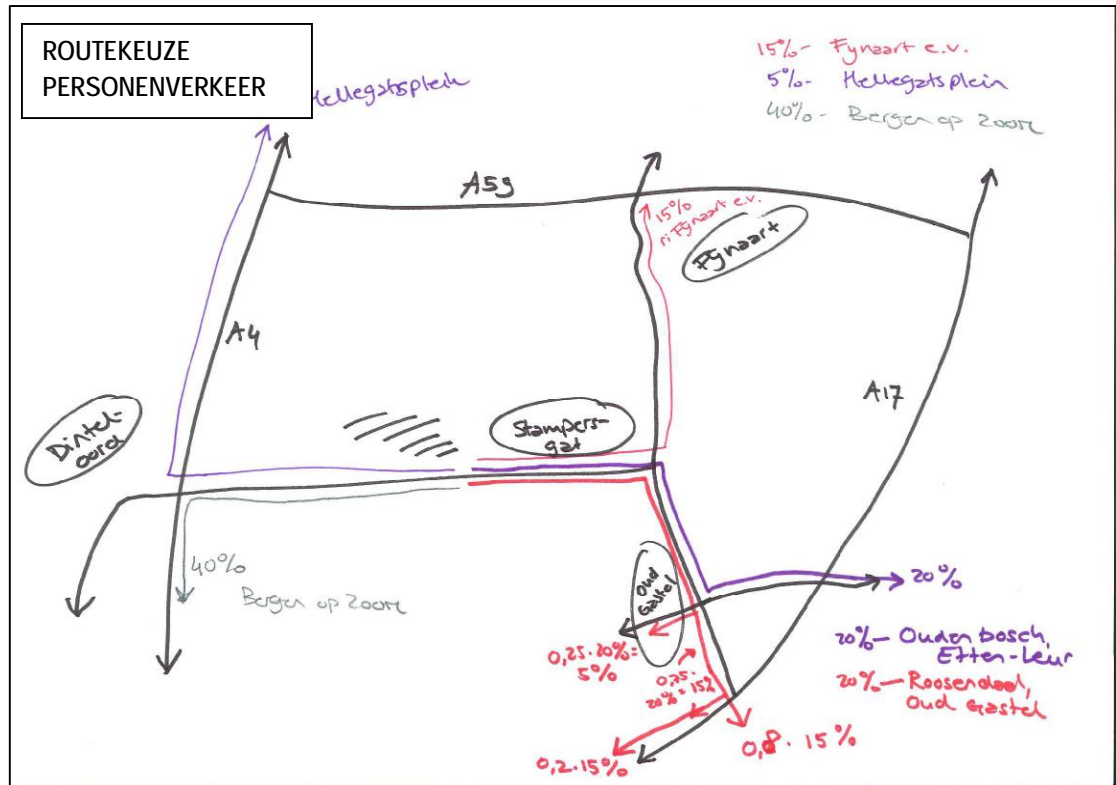 ROUTEKEUZE
PERSONENVERKEER
Hellegatsplein
15% - Fynaart e.v.
5% - Hellegatsplein
40% - Bergen op Zoom
A59
15%
ri Fynaart e.v.
Fynaart
A4
A17
Dintel-
oord
Stampers-
gat
40%
Bergen op Zoom
Oud
Gastel
20%
0,25.20%=
5%
0,75.
20%=15%
20% — Oudenbosch,
Etten-Leur
20% — Roosendaal,
Oud Gastel
0,8.15%
0,2.15%